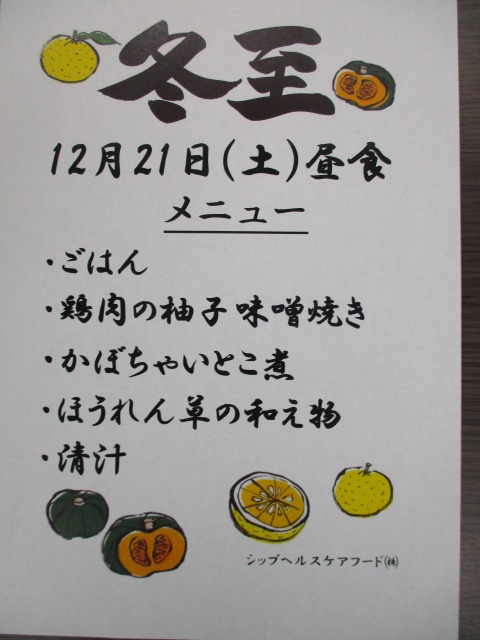 冬至
12月21日(土)昼食
メニュー
・ごはん
・鶏肉の柚子味噌焼き
・かぼちゃいとこ煮
・ほうれん草の和え物
・清汁
シップヘルスケアフード㈱